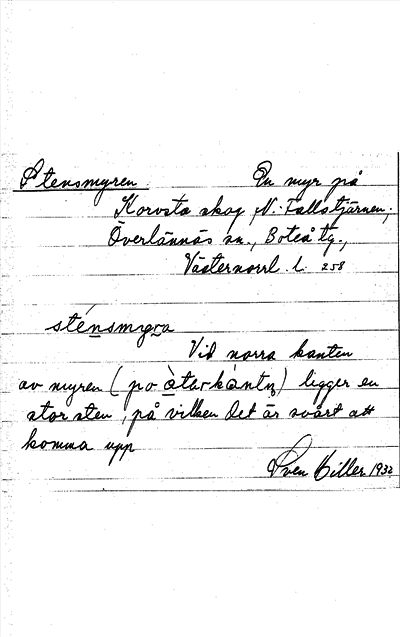 Stensmyren En myr på
Korvsta skog, N. Fallstjärnen,
Överlännäs sn., Boteå tg.,
Västernorrl. l. 258
sténsmyra
Vid norra kanten
av myren (po àtarkàntn̥) ligger en
stor sten, på vilken det är svårt att
komma upp
Sven Hiller 1932